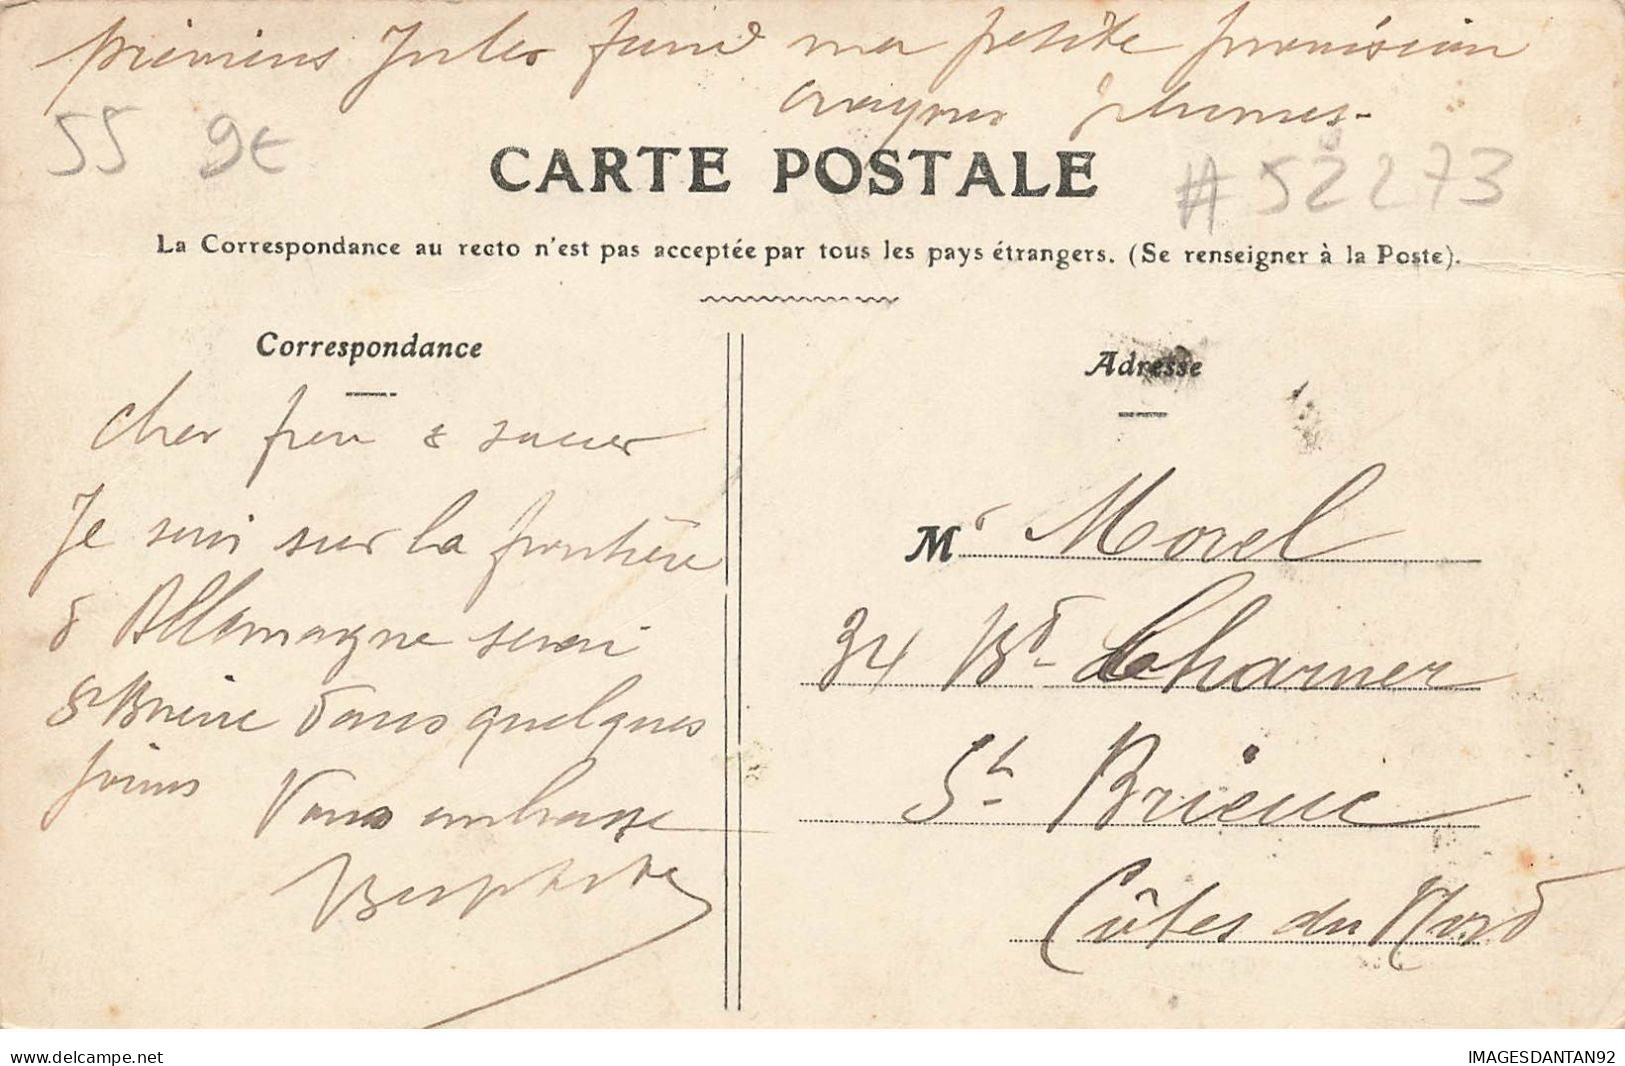 premiens Jules fund ma petite provision
crayons plumes-
55 9€
CARTE POSTALE
#52273
La Correspondance au recto n'est pas acceptée par tous les pays étrangers. (Se renseigner à la Poste).
Correspondance
Cher frere & sœur
Je suis sur la frontière
d Allemagne serai
St Brieuc dans quelques
jours
Vous embrasse
Baptiste
Adresse
Mr Morel
34 Bd- Charner
St- Brieuc
Côtes du Nord
www.delcampe.net
IMAGESDANTAN92